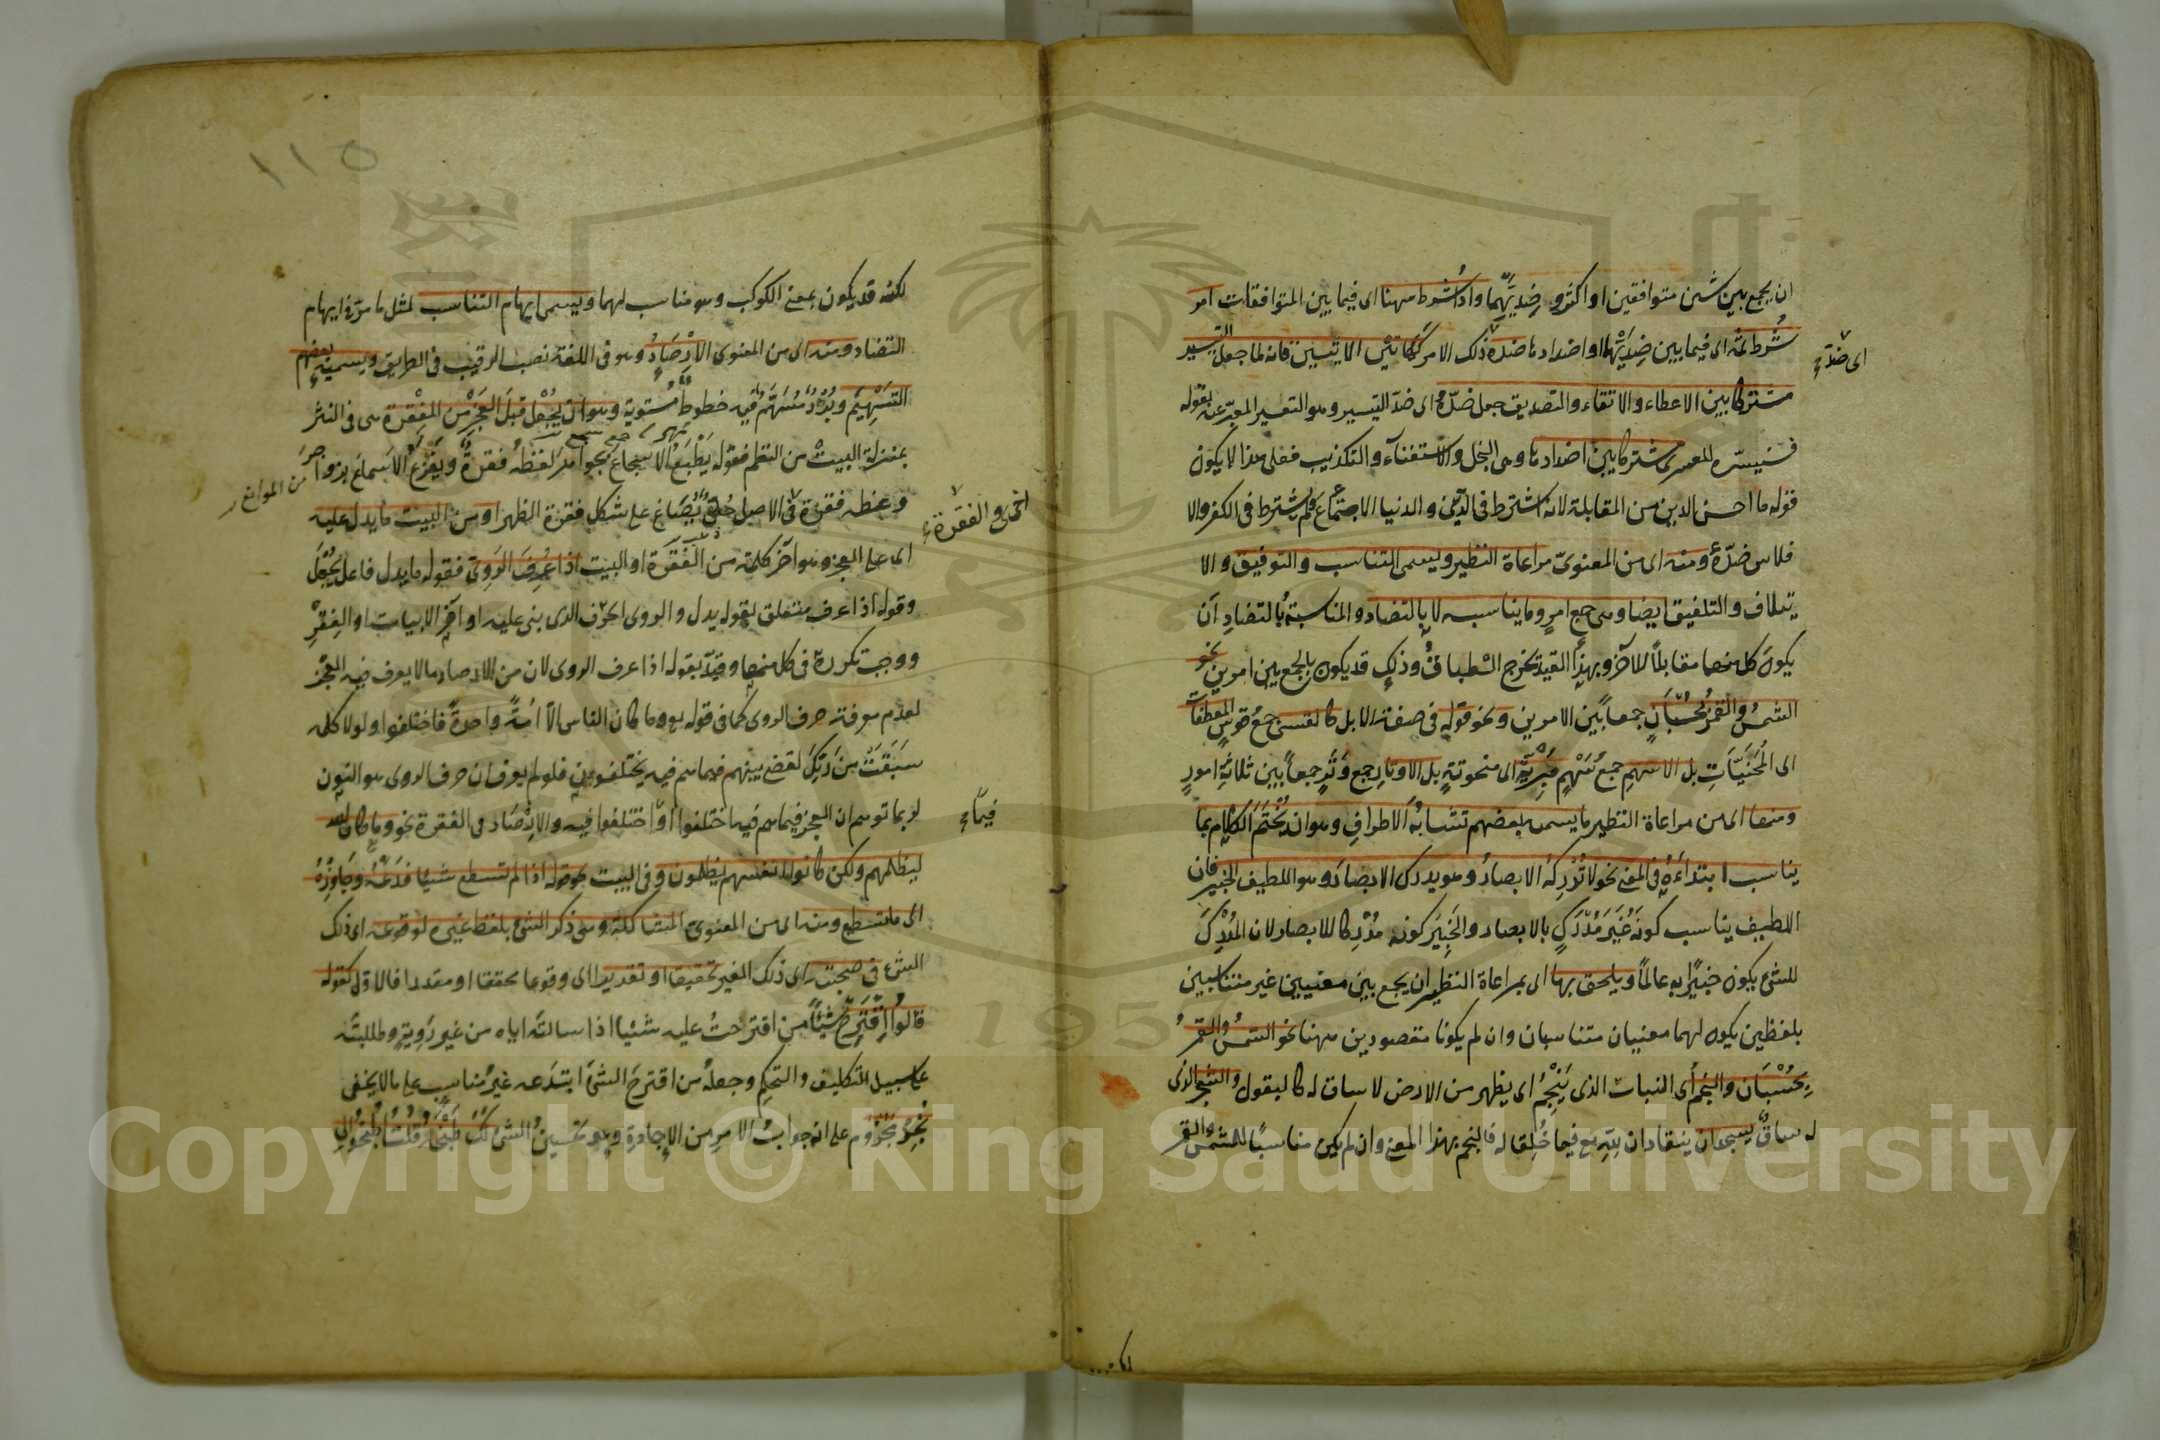 ان يجمع بين شيئين متوافقين او اكثر وضديهما واذا شرط ههنا اى فيما بين المتوافقات امر
شرط ثمه اى فيما بين ضديهما او اضدادها ضده ذلك الامر كهاتين الآيتين فانه لما جعل التيسير
اى ضد
مشتركا بين الاعطاء والاتقاء والتصديق جعل ضده اى ضد التيسير وهو التعسير المعبر عنه بقوله
فسنيسره للعسرى مشتركا بين اضدادها وهى البخل والاستغناء والتكذيب فعلى هذا لا يكون
قوله ما احسن الدين من المقابلة لانه اشترط فى الدين والدنيا الاجتماع ولم يشترط فى الكفر والا
فلاس ضده ومنه اى من المعنوى مراعاة النظير ويسمى التناسب والتوفيق والا
يتلاف والتلفيق ايضا وهى جمع امر وما يناسبه لا بالتضاد والمناسبة بالتضاد ان
يكون كل منهما مقابلا للآخر وبهذا القيد يخرج الطباق وذلك قد يكون بالجمع بين امرين نحو
الشمس والقمر بحسبان جمعا بين الامرين ونحو قوله فى صفة الابل كالقسى جمع قوس المعطفات
اى المحنيات بل الاسهم جمع سهم مبرية اى منحوتة بل الاوتار جمع وتر جمعا بين ثلاثة امور
ومنها اى من مراعاة النظير ما يسمى بعضهم تشابه الاطراف وهو ان يختم الكلام بما
يناسب ابتداءه فى المعنى نحو لا تدركه الابصار وهو يدرك الابصار وهو اللطيف الخبير فان
اللطيف يناسب كونه غير مدرك بالابصار والخبير كونه مدركا للابصار لان المدرك
للشئ يكون خبيرا به عالما ويلحق بها اى بمراعاة النظير ان يجمع بين معنيين غير متناسبين
بلفظين يكون لهما معنيان متناسبان وان لم يكونا مقصودين ههنا نحو الشمس والقمر
بحسبان والنجم اى النبات الذى ينجم اى يظهر من الارض لا ساق له كالبقول والشجر الذى
له ساق يسجدان ينقادان لله تع فيما خلقا له فالنجم بهذا المعنى وان لم يكن مناسبا للشمس والقمر
١١٥
لكنه قد يكون بمعنى الكوكب وهو مناسب لهما ويسمى ايهام التناسب لمثل ما مر فى ايهام
التضاد ومنه اى من المعنوى الارصاد وهو فى اللغة نصب الرقيب فى الطريق ويسميه بعضهم
التسهيم وبرد مسهم فيه خطوط مستوية وهو ان يجعل قبل العجز من الفقرة هى فى النثر
بمنزلة البيت من النظم فقوله يطبع الاسجاع بجواهر لفظه فقرة ويقرع الاسماع بزواجر
وعظه فقرة فى الاصل حلى يصاغ على شكل فقرة الظهر او من البيت ما يدل عليه
اى على العجز وهو آخر كلمة من الفقرة او البيت اذا عرف الروى فقوله ما يدل فاعل يجعل
وقوله اذا عرف متعلق بقوله يدل والروى الحرف الذى بنى عليه اواخر الابيات او الفقر
ووجب تكرره فى كل منهما وقيد بقوله اذا عرف الروى لان من الارصاد ما لا يعرف فيه العجز
لعدم معرفة حرف الروى كما فى قوله وما كان الناس الا امة واحدة فاختلفوا ولولا كلمة
سبقت من ربك لقضى بينهم فيما هم فيه يختلفون فلو لم يعرف ان حرف الروى هو النون
لربما توهم ان العجز فيما هم فيه اختلفوا او اختلفوا فيه والارصاد فى الفقرة نحو وما كان الله
ليظلمهم ولكن كانوا انفسهم يظلمون وفى البيت نحو قوله اذا لم تستطع شيئا فدعه وجاوزه
الى ما تستطع ومنه اى من المعنوى المشاكلة وهى ذكر الشئ بلفظ غيره لوقوعه اى ذلك
الشئ فى صحبته اى ذلك الغير تحقيقا او تقديرا اى وقوعا محققا او مقدرا فالاول كقوله
قالوا اقترح شيئا من اقترحت عليه شيئا اذا سألته اياه من غير روية وطلبته
على سبيل التكليف والتحكم وجعله من اقترح الشئ ابتدعه غير مناسب على ما لا يخفى
نجد مجزوم على انه جواب الامر من الاجادة وهو تحسين الشئ لك طبخه قلت اطبخوا لى
من المواعظ